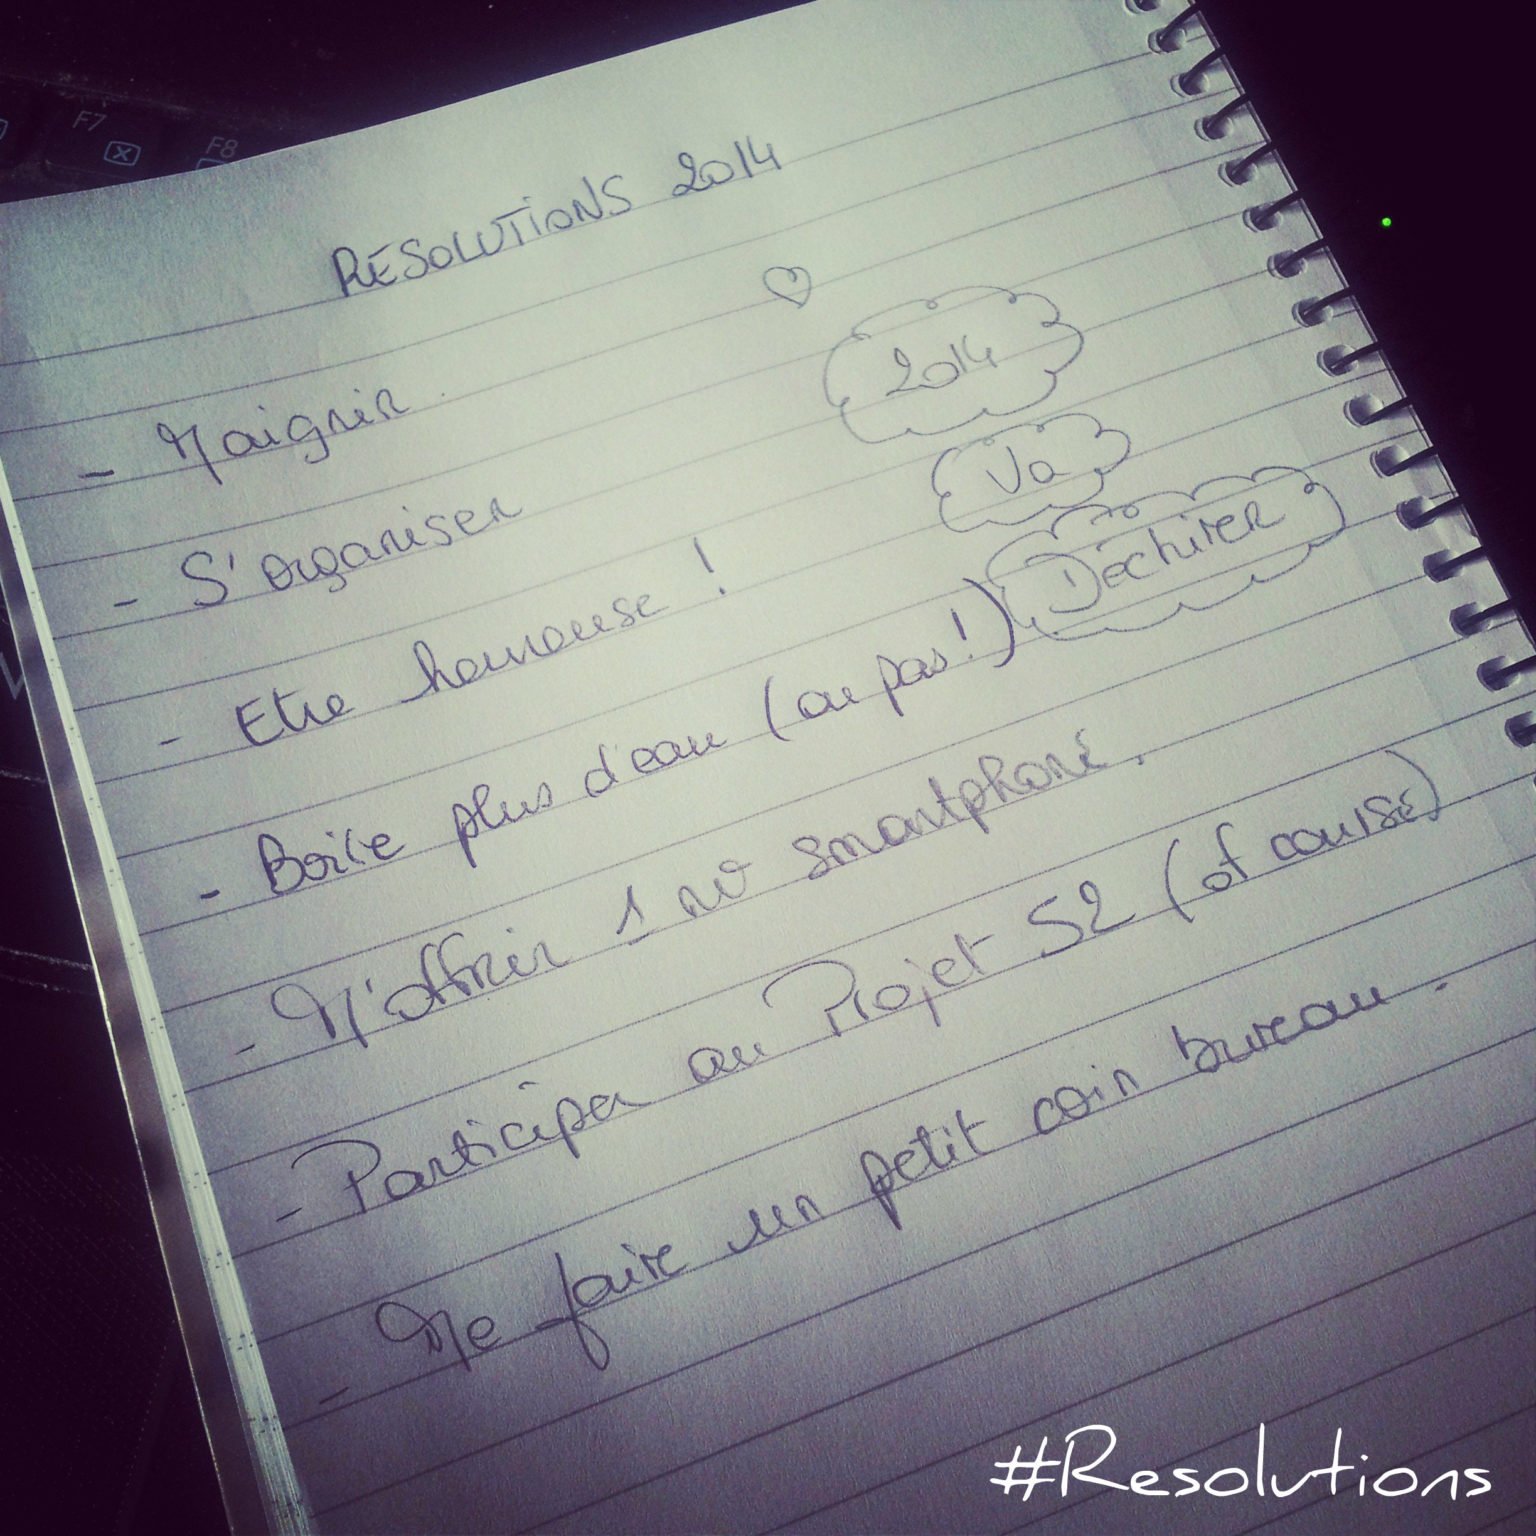 F7
F8
RESOLUTIONS 2014
- Maigrir
- S'organiser
- Etre heureuse !
- Boire plus d'eau (ou pas !)
- M'offrir 1 nv smartphone.
- Participer au Projet 52 (of course)
- Me faire un petit coin bureau.
2014
Va
Déchirer
#Resolutions